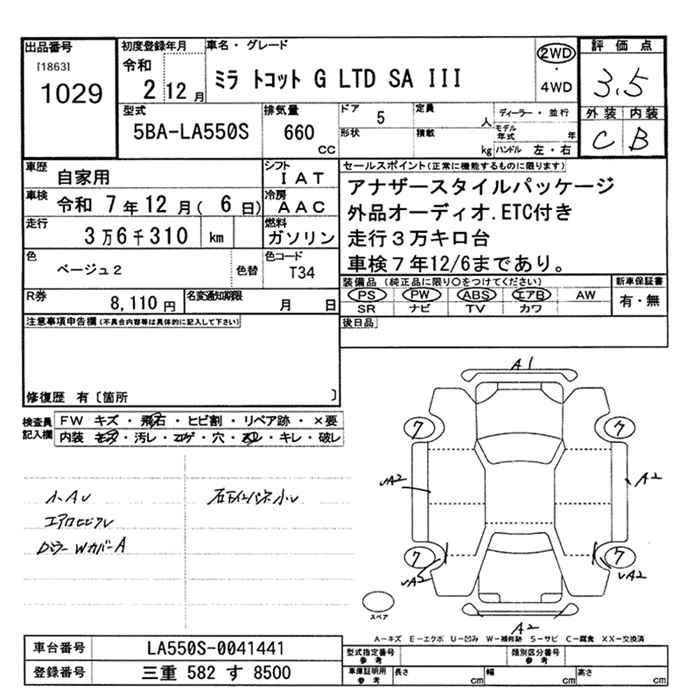 出品番号
[1863]
1029
初度登録年月
令和
2 12月
車名・グレード
ミラ トコット G LTD SA III
2WD
・
4WD
評価点
3.5
外装 内装
C B
型式
5BA-LA550S
排気量
660
cc
ドア 5
形状
定員
人
積載
kg
ディーラー・並行
モデル年式 年
ハンドル 左・右
車歴
自家用
シフト
IAT
車検
令和 7年12月(6日)
冷房
AAC
走行
3万6千310 km
燃料
ガソリン
色
ベージュ2
色替
色コード
T34
R券
8,110円
名変通知期限
月 日
セールスポイント(正常に機能するものに限ります)
アナザースタイルパッケージ
外品オーディオ.ETC付き
走行3万キロ台
車検7年12/6まであり。
装備品(純正品に限り○をつけてください)
PS PW ABS エアB AW
SR ナビ TV カワ
新車保証書
有・無
後日品
注意事項申告欄(不具合内容等は具体的に記入して下さい)
修復歴 有〔箇所 〕
検査員
記入欄
FW キズ・飛石・ヒビ割・リペア跡・×要
内装 キズ・汚レ・コゲ・穴・スレ・キレ・破レ
小AU
ドアミラーWカバーA
A1
7
7
A2
A2
7
7
A2
A2
A2
スペア
A-キズ E-エクボ U-凹み W-補修跡 S-サビ C-腐食 XX-交換済
車台番号
LA550S-0041441
登録番号
三重 582 す 8500
型式指定番号
参考
類別区分番号
参考
車庫証明用
参考
長さ cm
幅 cm
高さ cm